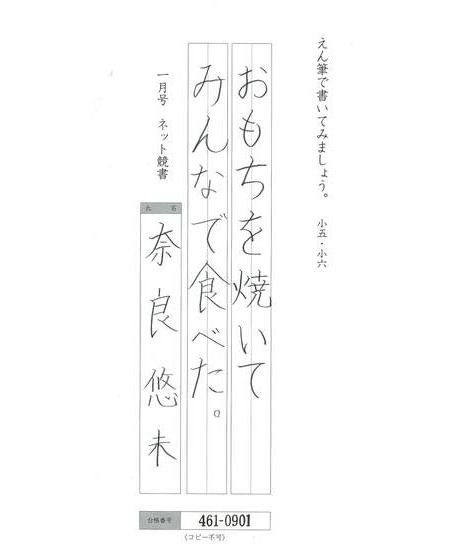 えん筆で書いてみましょう。 小五・小六
おもちを焼いて
みんなで食べた。
一月号 ネット競書
氏名
奈良悠未
台帳番号 461-0901
(コピー不可)